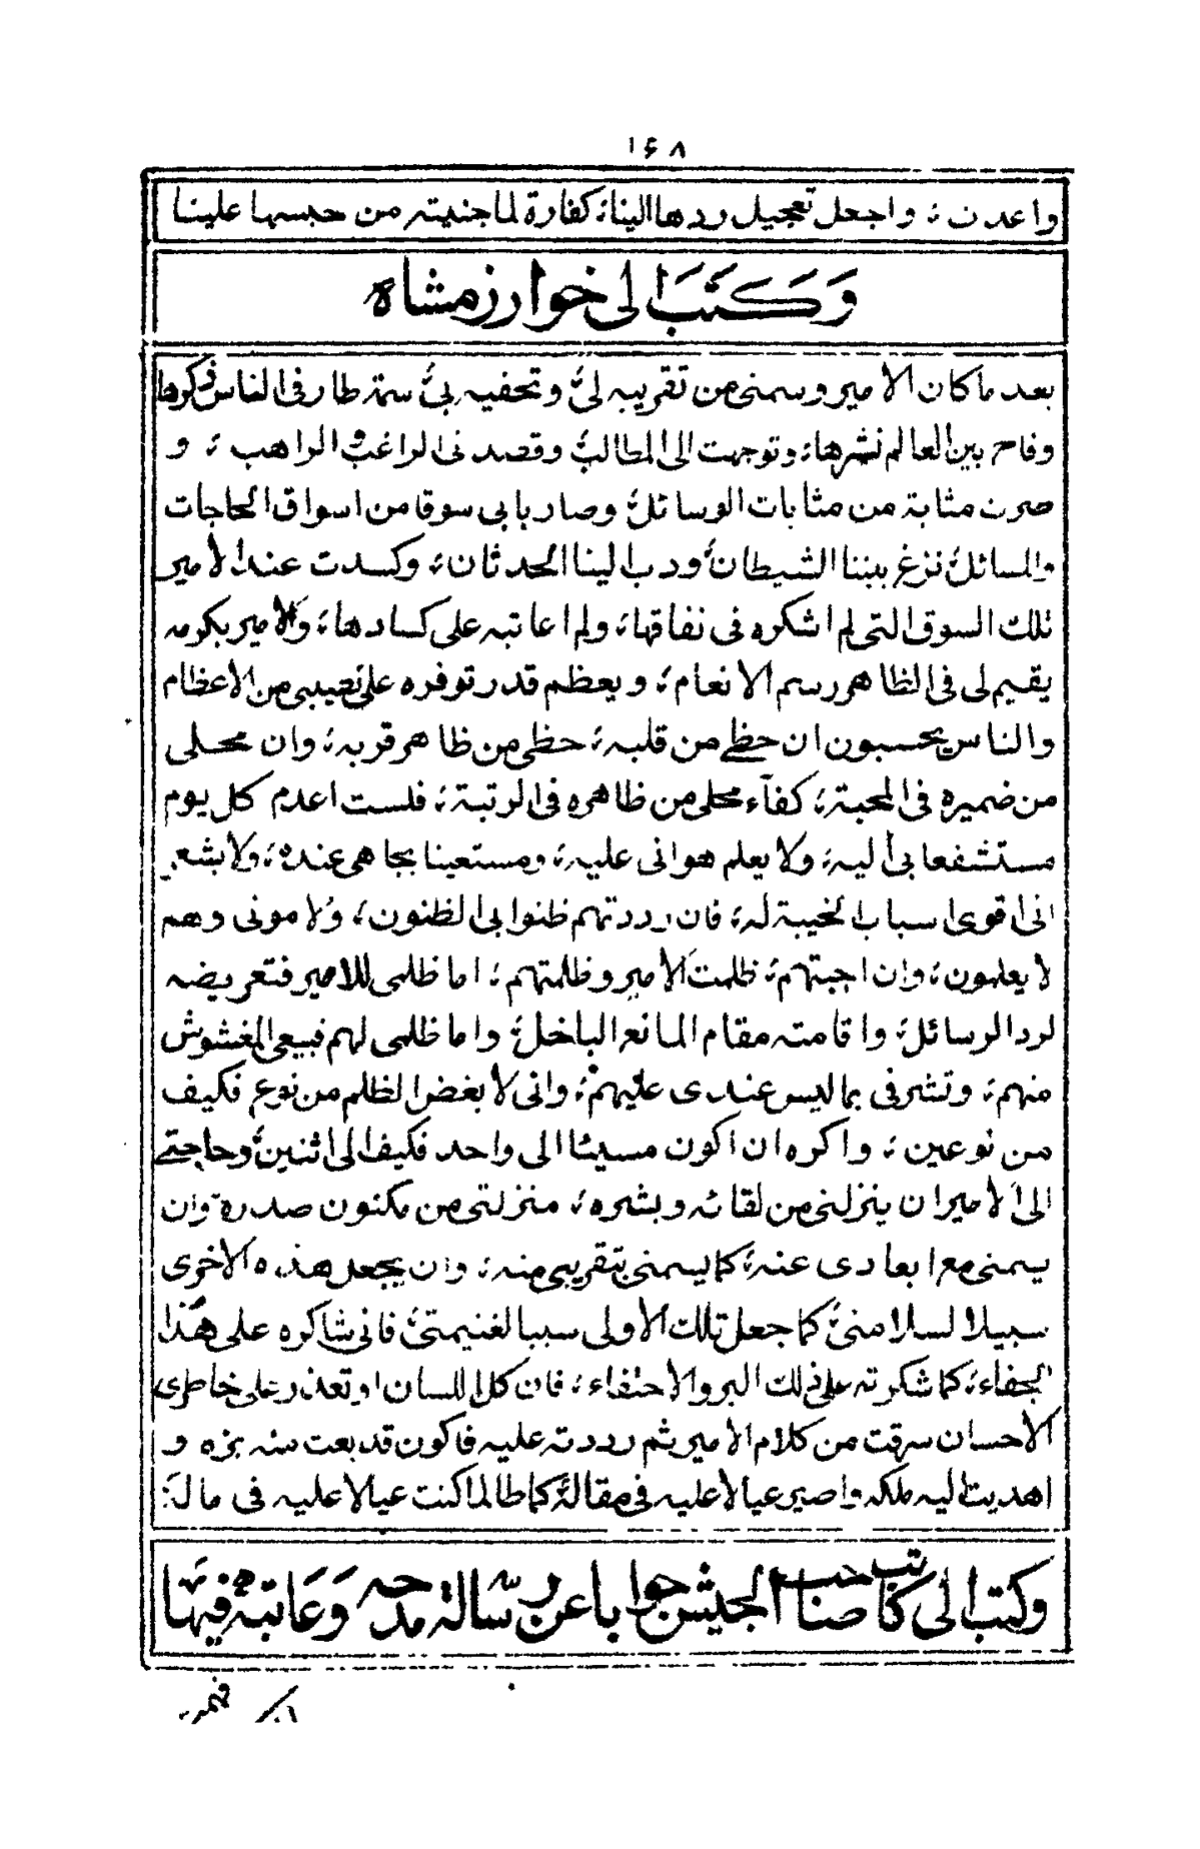 ١٦٨
واعدن ؛ واجعل تعجيل ردها الينا؛ كفارة لما جنيته من حبسها علينا
وَكَتَبَ الى خوارزمشاه
بعد ما كان الامير وسمنى من تقريبه لىؑ وتحفيه بىؑ سمة طار فى الناس ذكرها
وفاح بين العالم نشرها؛ وتوجهت الى المطالبؑ وقصدنى الراغب والراهب ؛ و
صرت مثابة من مثابات الوسائلؑ وصار بابى سوقا من اسواق الحاجات
والمسائلؑ نزغ بيننا الشيطانؑ ودب الينا الحدثان؛ وكسدت عند الامير
تلك السوق التى لم اشكره فى نفاقها؛ ولم اعاتبه على كسادها؛ والامير بكرمه
يقيم لى فى الظاهر رسم الانعام؛ ويعظم قدر توفره على نصيبى من الاعظام
والناس يحسبون ان حظے من قلبه؛ حظى من ظاهر قربه؛ وان محلى
من ضميره فى المحبة؛ كفآء محلى من ظاهره فى الرتبة؛ فلست اعدم كل يوم
مستشفعا بى اليه؛ ولا يعلم هوانى عليه؛ ومستعينا بجاهى عنده؛ ولا يشعر
انى اقوى اسباب الخيبة له؛ فان رددتهم ظنوا بى الظنون؛ ولامونى وهم
لا يعلمون؛ وان اجبتهم؛ ظلمت الامير وظلمتهم؛ اما ظلمى للامير فتعريضه
لرد الرسائلؑ واقامته مقام المانع الباخلؑ واما ظلمى لهم فبيعى المغشوش
منهم؛ وتشرفى بما ليس عندى عليهم؛ وانى لابغض الظلم من نوع فكيف
من نوعين ؛ واكره ان اكون مسيئا الى واحد فكيف الى اثنينؑ وحاجتے
الى الامير ان ينزلنى من لقائه وبشره؛ منزلتى من مكنون صدره وان
يسمنى مع ابعادى عنه؛ كما يسمنى بتقريبى منه؛ وان يجعل هذه الاخرى
سبيلا لسلامتىؑ كما جعل تلك الاولى سببا لغنيمتىؑ فانى شاكره على هذا
الجفاء؛ كما شكرته على ذلك البر والاحتفاء؛ فان كل اللسان او تعذر على خاطرى
الاحسان سرقت من كلام الامير ثم رددته عليه فاكون قد بعت منه بزه و
اهديت اليه ملكه واصير عيالا عليه فى مقالهؑ كما طالما كنت عيالا عليه فى ماله؛
وكتب الى كاتب صاحب الجيش جوابا عن رسالة مدحه وَعَاتبه فيهَا